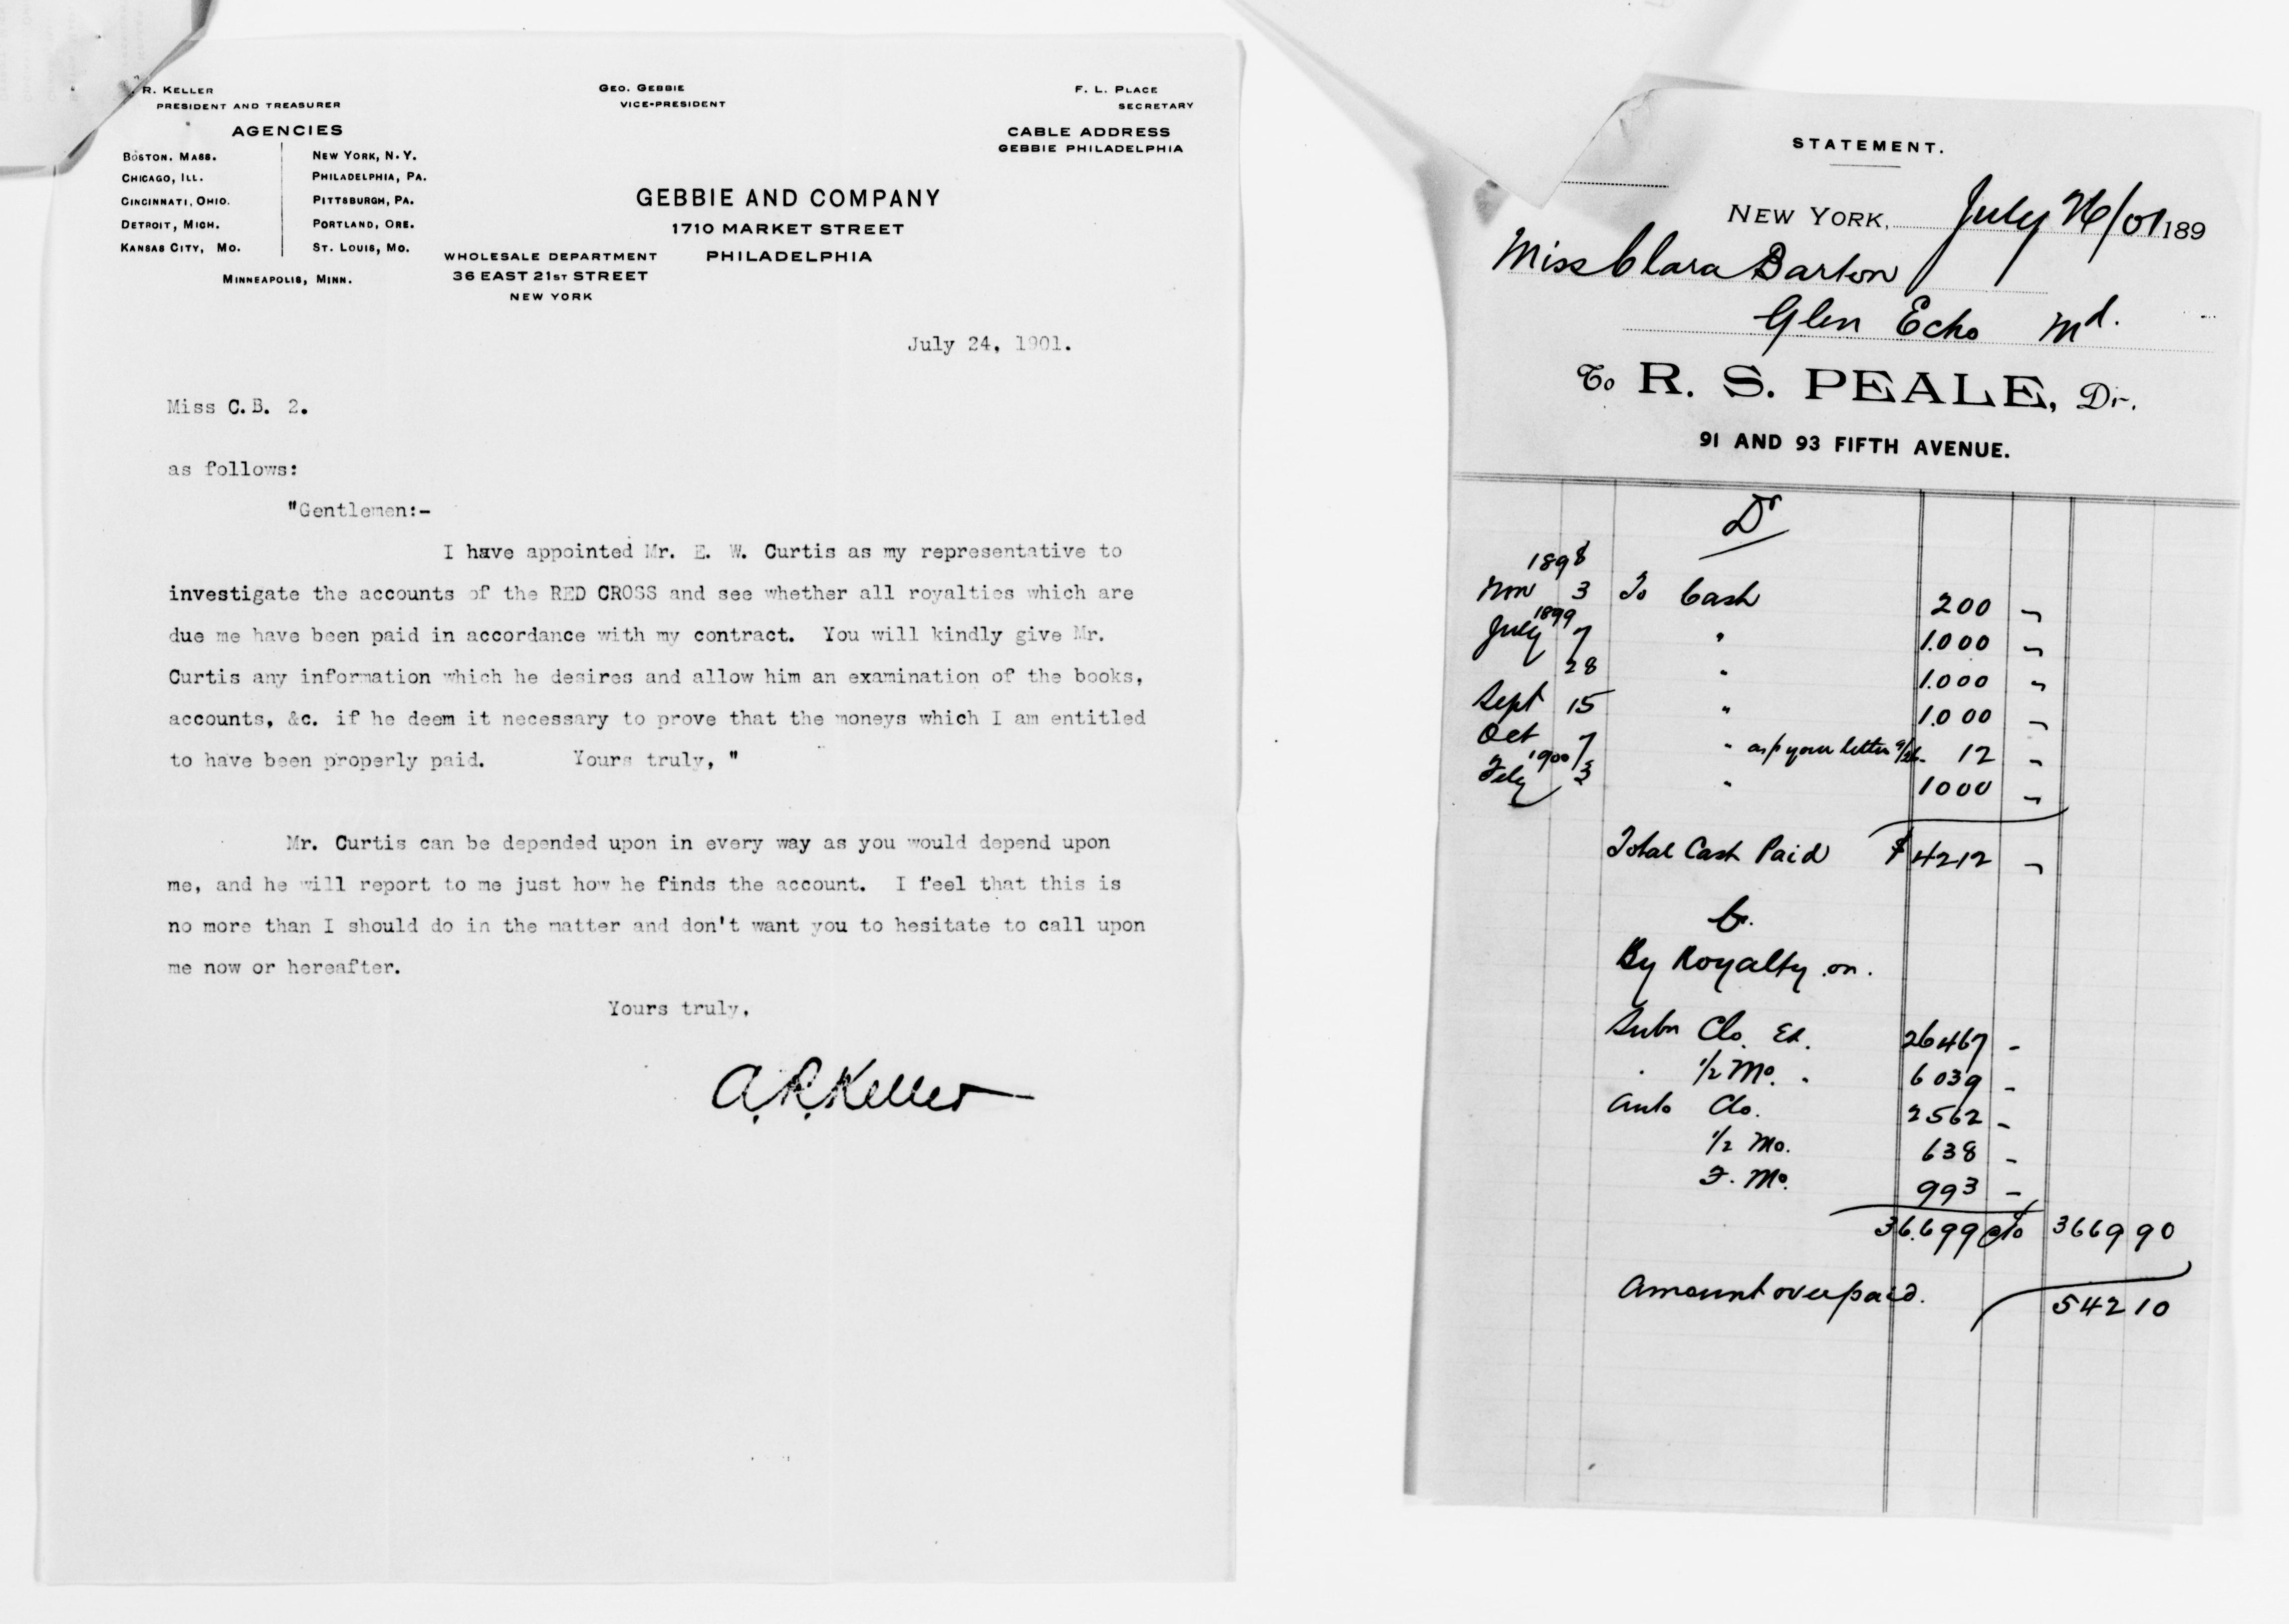 R. KELLER
PRESIDENT AND TREASURER
GEO. GEBBIE
VICE-PRESIDENT
F. L. PLACE
SECRETARY
AGENCIES
BOSTON. MASS.
CHICAGO, ILL.
CINCINNATI, OHIO.
DETROIT, MICH.
KANSAS CITY, MO.
NEW YORK, N.Y.
PHILADELPHIA, PA.
PITTSBURGH, PA.
PORTLAND, ORE.
ST. LOUIS, MO.
MINNEAPOLIS, MINN.
CABLE ADDRESS
GEBBIE PHILADELPHIA
GEBBIE AND COMPANY
1710 MARKET STREET
PHILADELPHIA
WHOLESALE DEPARTMENT
36 EAST 21ST STREET
NEW YORK
July 24, 1901.
Miss C.B. 2.
as follows:
"Gentlemen:-
I have appointed Mr. E. W. Curtis as my representative to
investigate the accounts of the RED CROSS and see whether all royalties which are
due me have been paid in accordance with my contract. You will kindly give Mr.
Curtis any information which he desires and allow him an examination of the books,
accounts, &c. if he deem it necessary to prove that the moneys which I am entitled
to have been properly paid. Yours truly, "
Mr. Curtis can be depended upon in every way as you would depend upon
me, and he will report to me just how he finds the account. I feel that this is
no more than I should do in the matter and don't want you to hesitate to call upon
me now or hereafter.
Yours truly,
A.R. Keller
STATEMENT.
NEW YORK, July 26/01 189
Miss Clara Barton
Glen Echo Md.
To R. S. PEALE, Dr.
91 AND 93 FIFTH AVENUE.
Dr
1898
Nov 3 To Cash 200 -
1899
July 7 " 1.000 -
28 " 1.000 -
Sept 15 " 1.000 -
Oct 7 " as p your letter 12 -
1900
Feby 3 " 1000 -
Total Cash Paid $4212 -
Cr.
By Royalty on.
Subn Clo. Ed. 26467 -
" 1/2 Mo. " 6039 -
Auto Clo. 2562 -
1/2 Mo. 638 -
F. Mo. 993 -
36.699 c/o 3669 90
Amount overpaid. 542 10